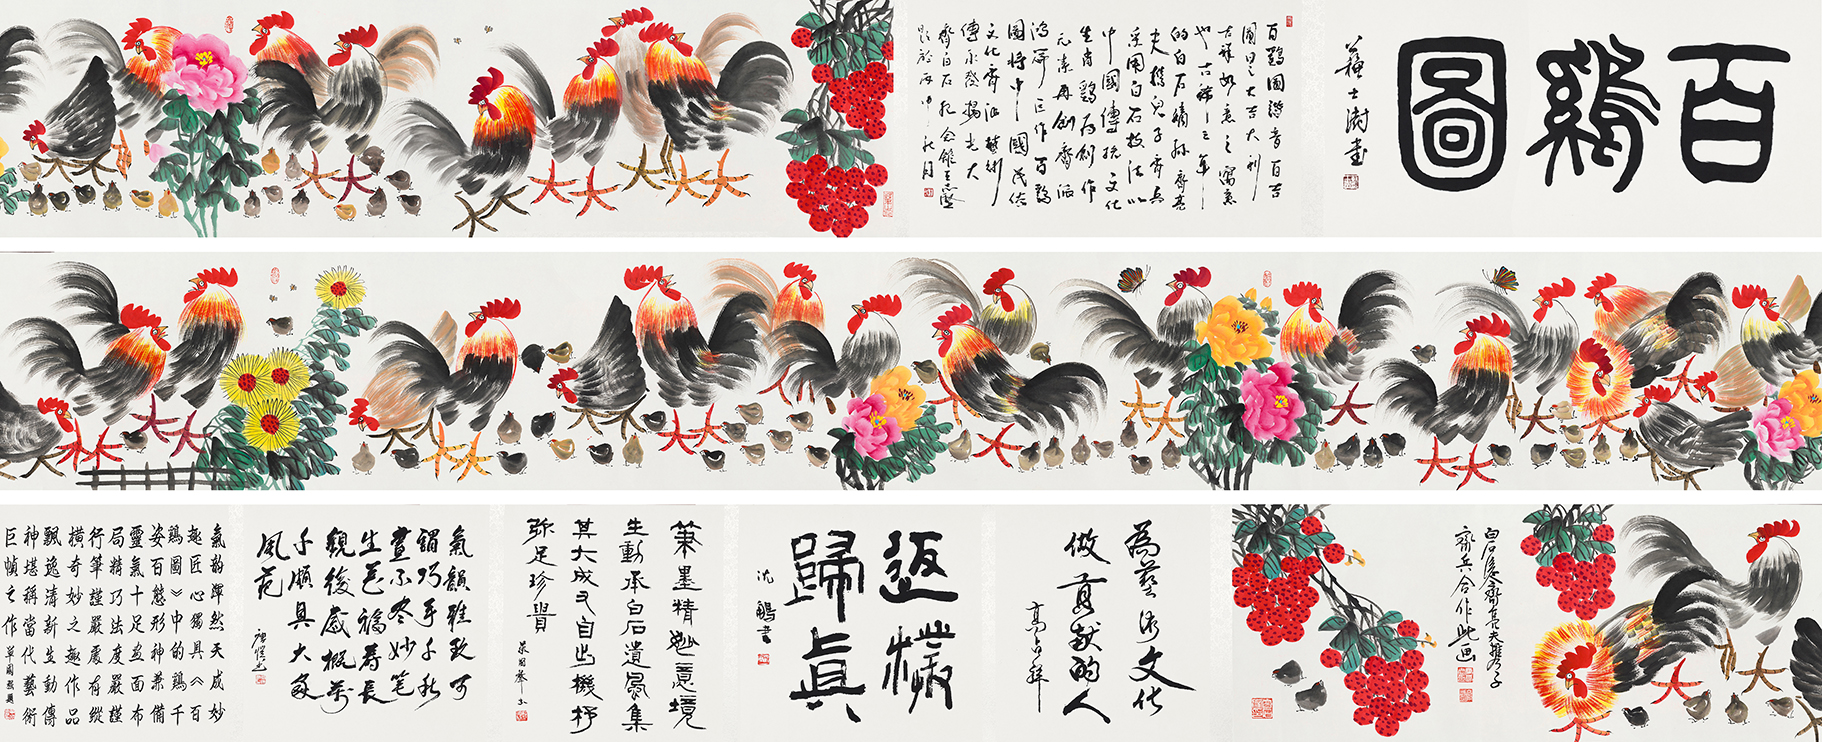 百鷄圖
蘇士澍書
百鷄圖諧音百吉
圖曰之大吉大利
吉祥如意之寓意
的白石嫡孙齊亮
夫携兒子齊兵
采用白石技法以
中國傳統文化
生肖鷄为創作
元素再創齊派
鸿篇巨作百鷄
图將中國民俗
文化齊派藝術
傳承發揚光大
齊白石紀念館王志
题於丙申秋月
白石後裔齊亮夫携子
齊兵合作此画
為藝術文化
做貢献的人
高占祥
返樸
歸真
沈鵬書
筆墨精妙意境
生動承白石遺風集
其大成又自出機杼
弥足珍貴
氣韻雅致可
謂巧手千秋
畫不尽妙笔
生花福壽長
観後感概萬
千頗具大家
風范
氣韵渾然天成妙
趣匠心獨具《百
鷄圖》中的鷄千
姿百態形神兼備
靈氣十足画面布
局精巧法度嚴謹
行筆謹嚴處有縱
橫奇妙之趣作品
飄逸清新生動傳
神堪稱當代藝術
巨幀之作
單國強題